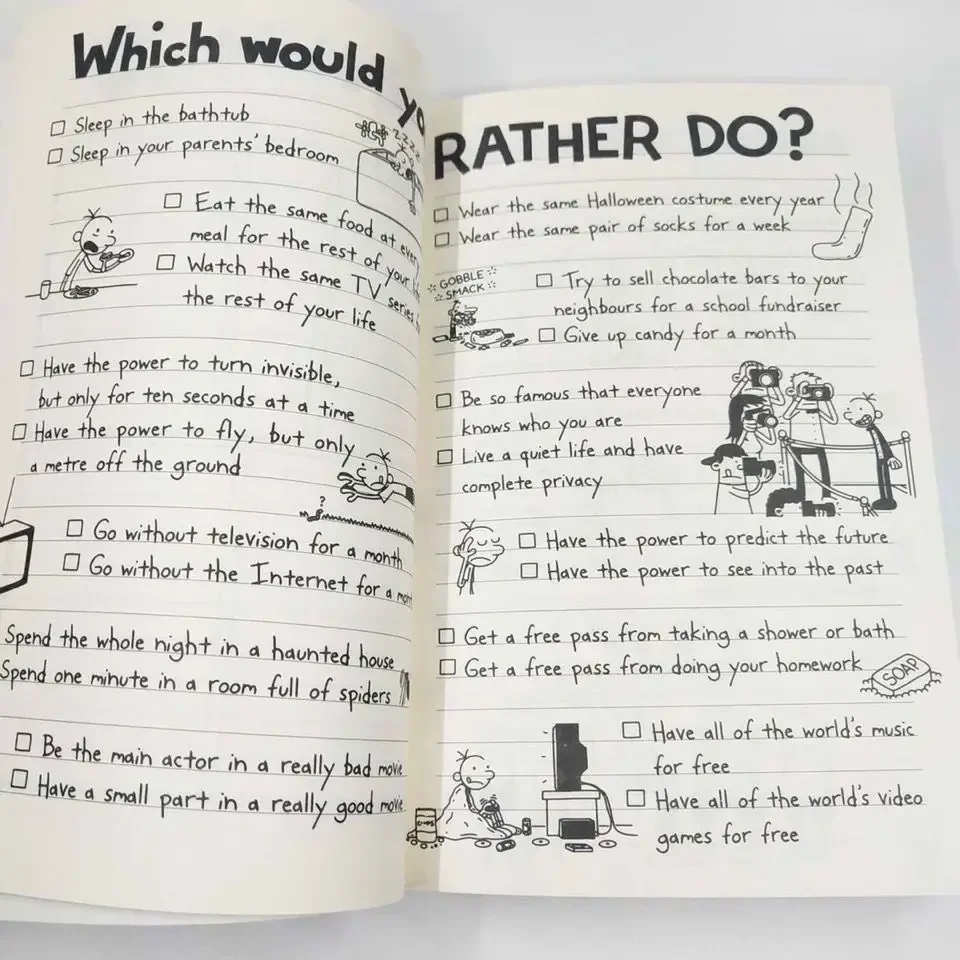 Which would yo
Sleep in the bathtub
Sleep in your parents' bedroom
zzzz
Eat the same food at every
meal for the rest of your
Watch the same TV series
the rest of your life
Have the power to turn invisible,
but only for ten seconds at a time
Have the power to fly, but only
a metre off the ground
?
Go without television for a month
Go without the Internet for a mon
Spend the whole night in a haunted house
Spend one minute in a room full of spiders
Be the main actor in a really bad movie
Have a small part in a really good movie
RATHER DO?
Wear the same Halloween costume every year
Wear the same pair of socks for a week
GOBBLE
SMACK
Try to sell chocolate bars to your
neighbours for a school fundraiser
Give up candy for a month
Be so famous that everyone
knows who you are
Live a quiet life and have
complete privacy
Have the power to predict the future
Have the power to see into the past
Get a free pass from taking a shower or bath
Get a free pass from doing your homework
SOAP
Have all of the world's music
for free
Have all of the world's video
games for free